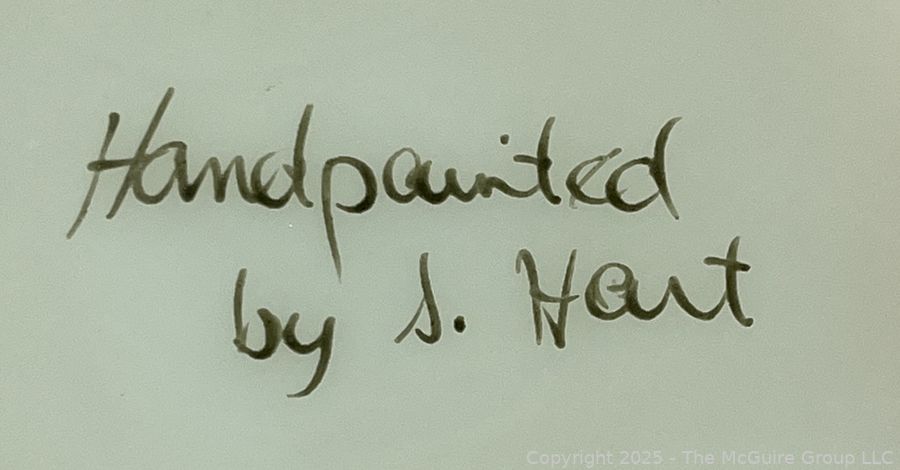 Handpainted
by S. Hart
Copyright 2025 - The McGuire Group LLC